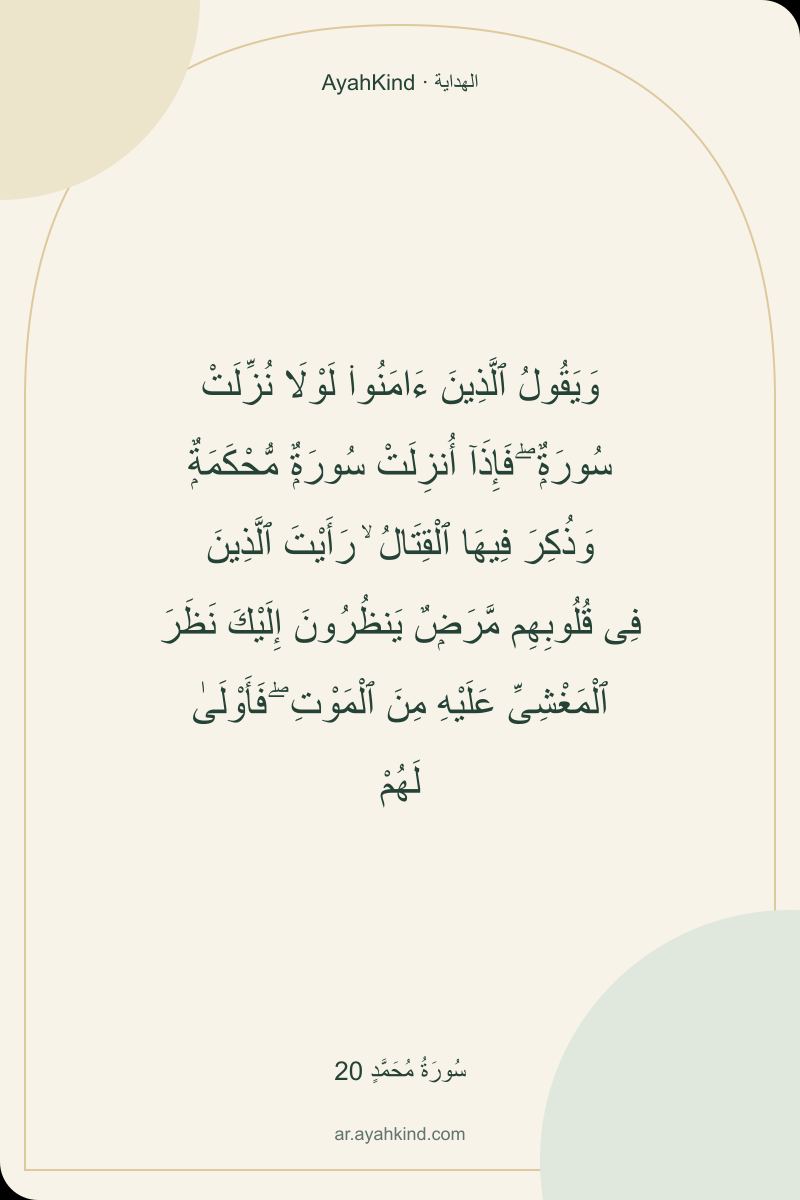 AyahKind · الهداية
وَيَقُولُ ٱلَّذِينَ ءَامَنُوا۟ لَوْلَا نُزِّلَتْ
سُورَةٌۭ ۖ فَإِذَآ أُنزِلَتْ سُورَةٌۭ مُّحْكَمَةٌۭ
وَذُكِرَ فِيهَا ٱلْقِتَالُ ۙ رَأَيْتَ ٱلَّذِينَ
فِى قُلُوبِهِم مَّرَضٌۭ يَنظُرُونَ إِلَيْكَ نَظَرَ
ٱلْمَغْشِىِّ عَلَيْهِ مِنَ ٱلْمَوْتِ ۖ فَأَوْلَىٰ
لَهُمْ
سُورَةُ مُحَمَّدٍ 20
ar.ayahkind.com